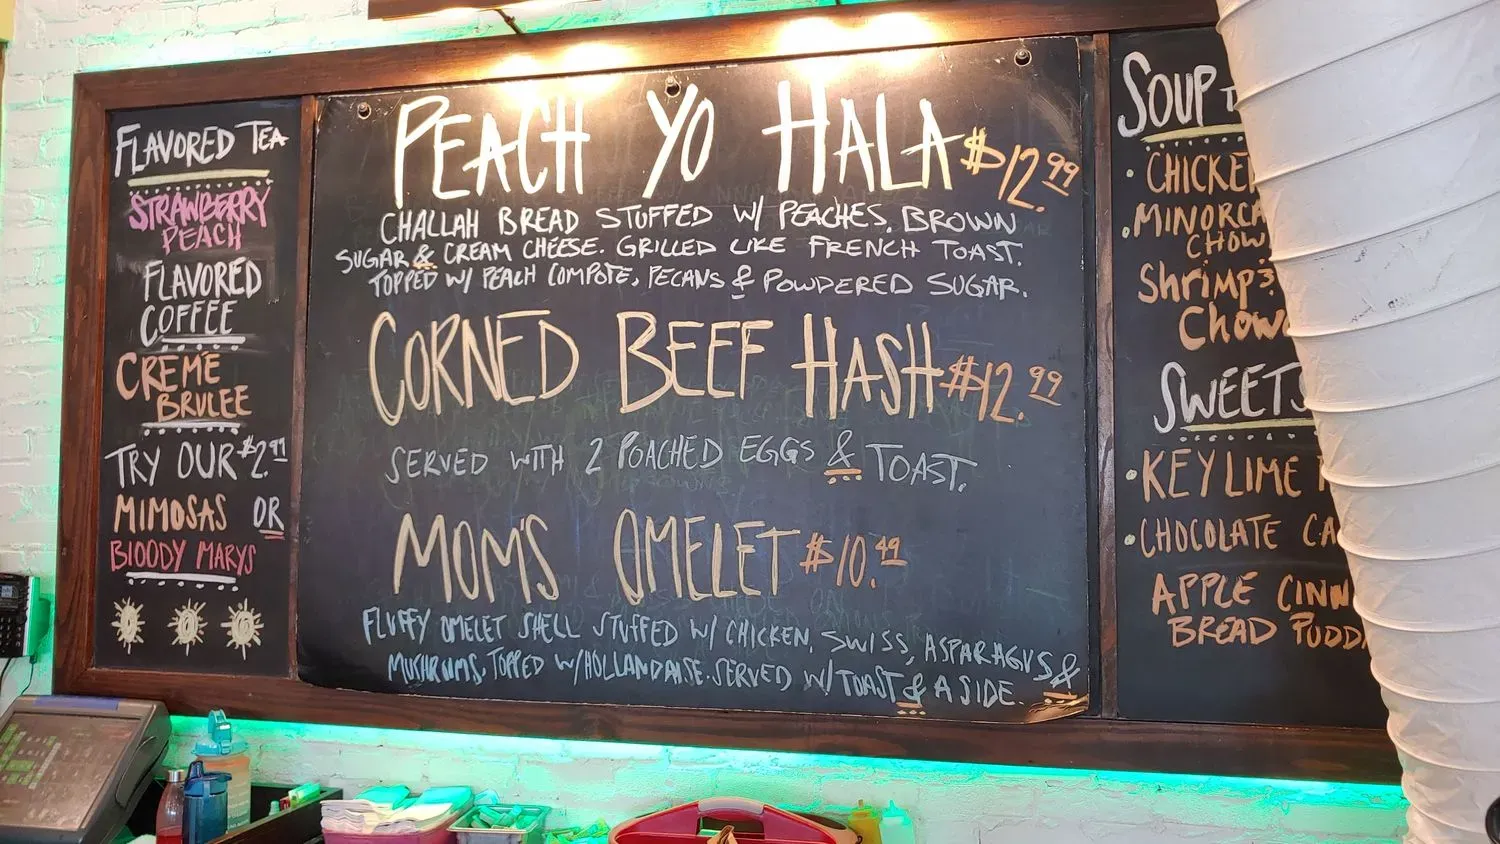 FLAVORED TEA
STRAWBERRY
PEACH
FLAVORED
COFFEE
CREME
BRULEE
TRY OUR $2.99
MIMOSAS OR
BLOODY MARYS
PEACH YO HALA $12.99
CHALLAH BREAD STUFFED W/ PEACHES, BROWN
SUGAR & CREAM CHEESE. GRILLED LIKE FRENCH TOAST.
TOPPED W/ PEACH COMPOTE, PECANS & POWDERED SUGAR.
CORNED BEEF HASH $12.99
SERVED WITH 2 POACHED EGGS & TOAST.
MOM'S OMELET $10.49
FLUFFY OMELET SHELL STUFFED W/ CHICKEN, SWISS, ASPARAGUS &
MUSHRUMS, TOPPED W/ HOLLANDAISE. SERVED W/ TOAST & A SIDE.
SOUP
CHICKEN
MINORCA
CHOW
Shrimp &
Chow
SWEETS
KEY LIME
CHOCOLATE CA
APPLE CINN
BREAD PUDD